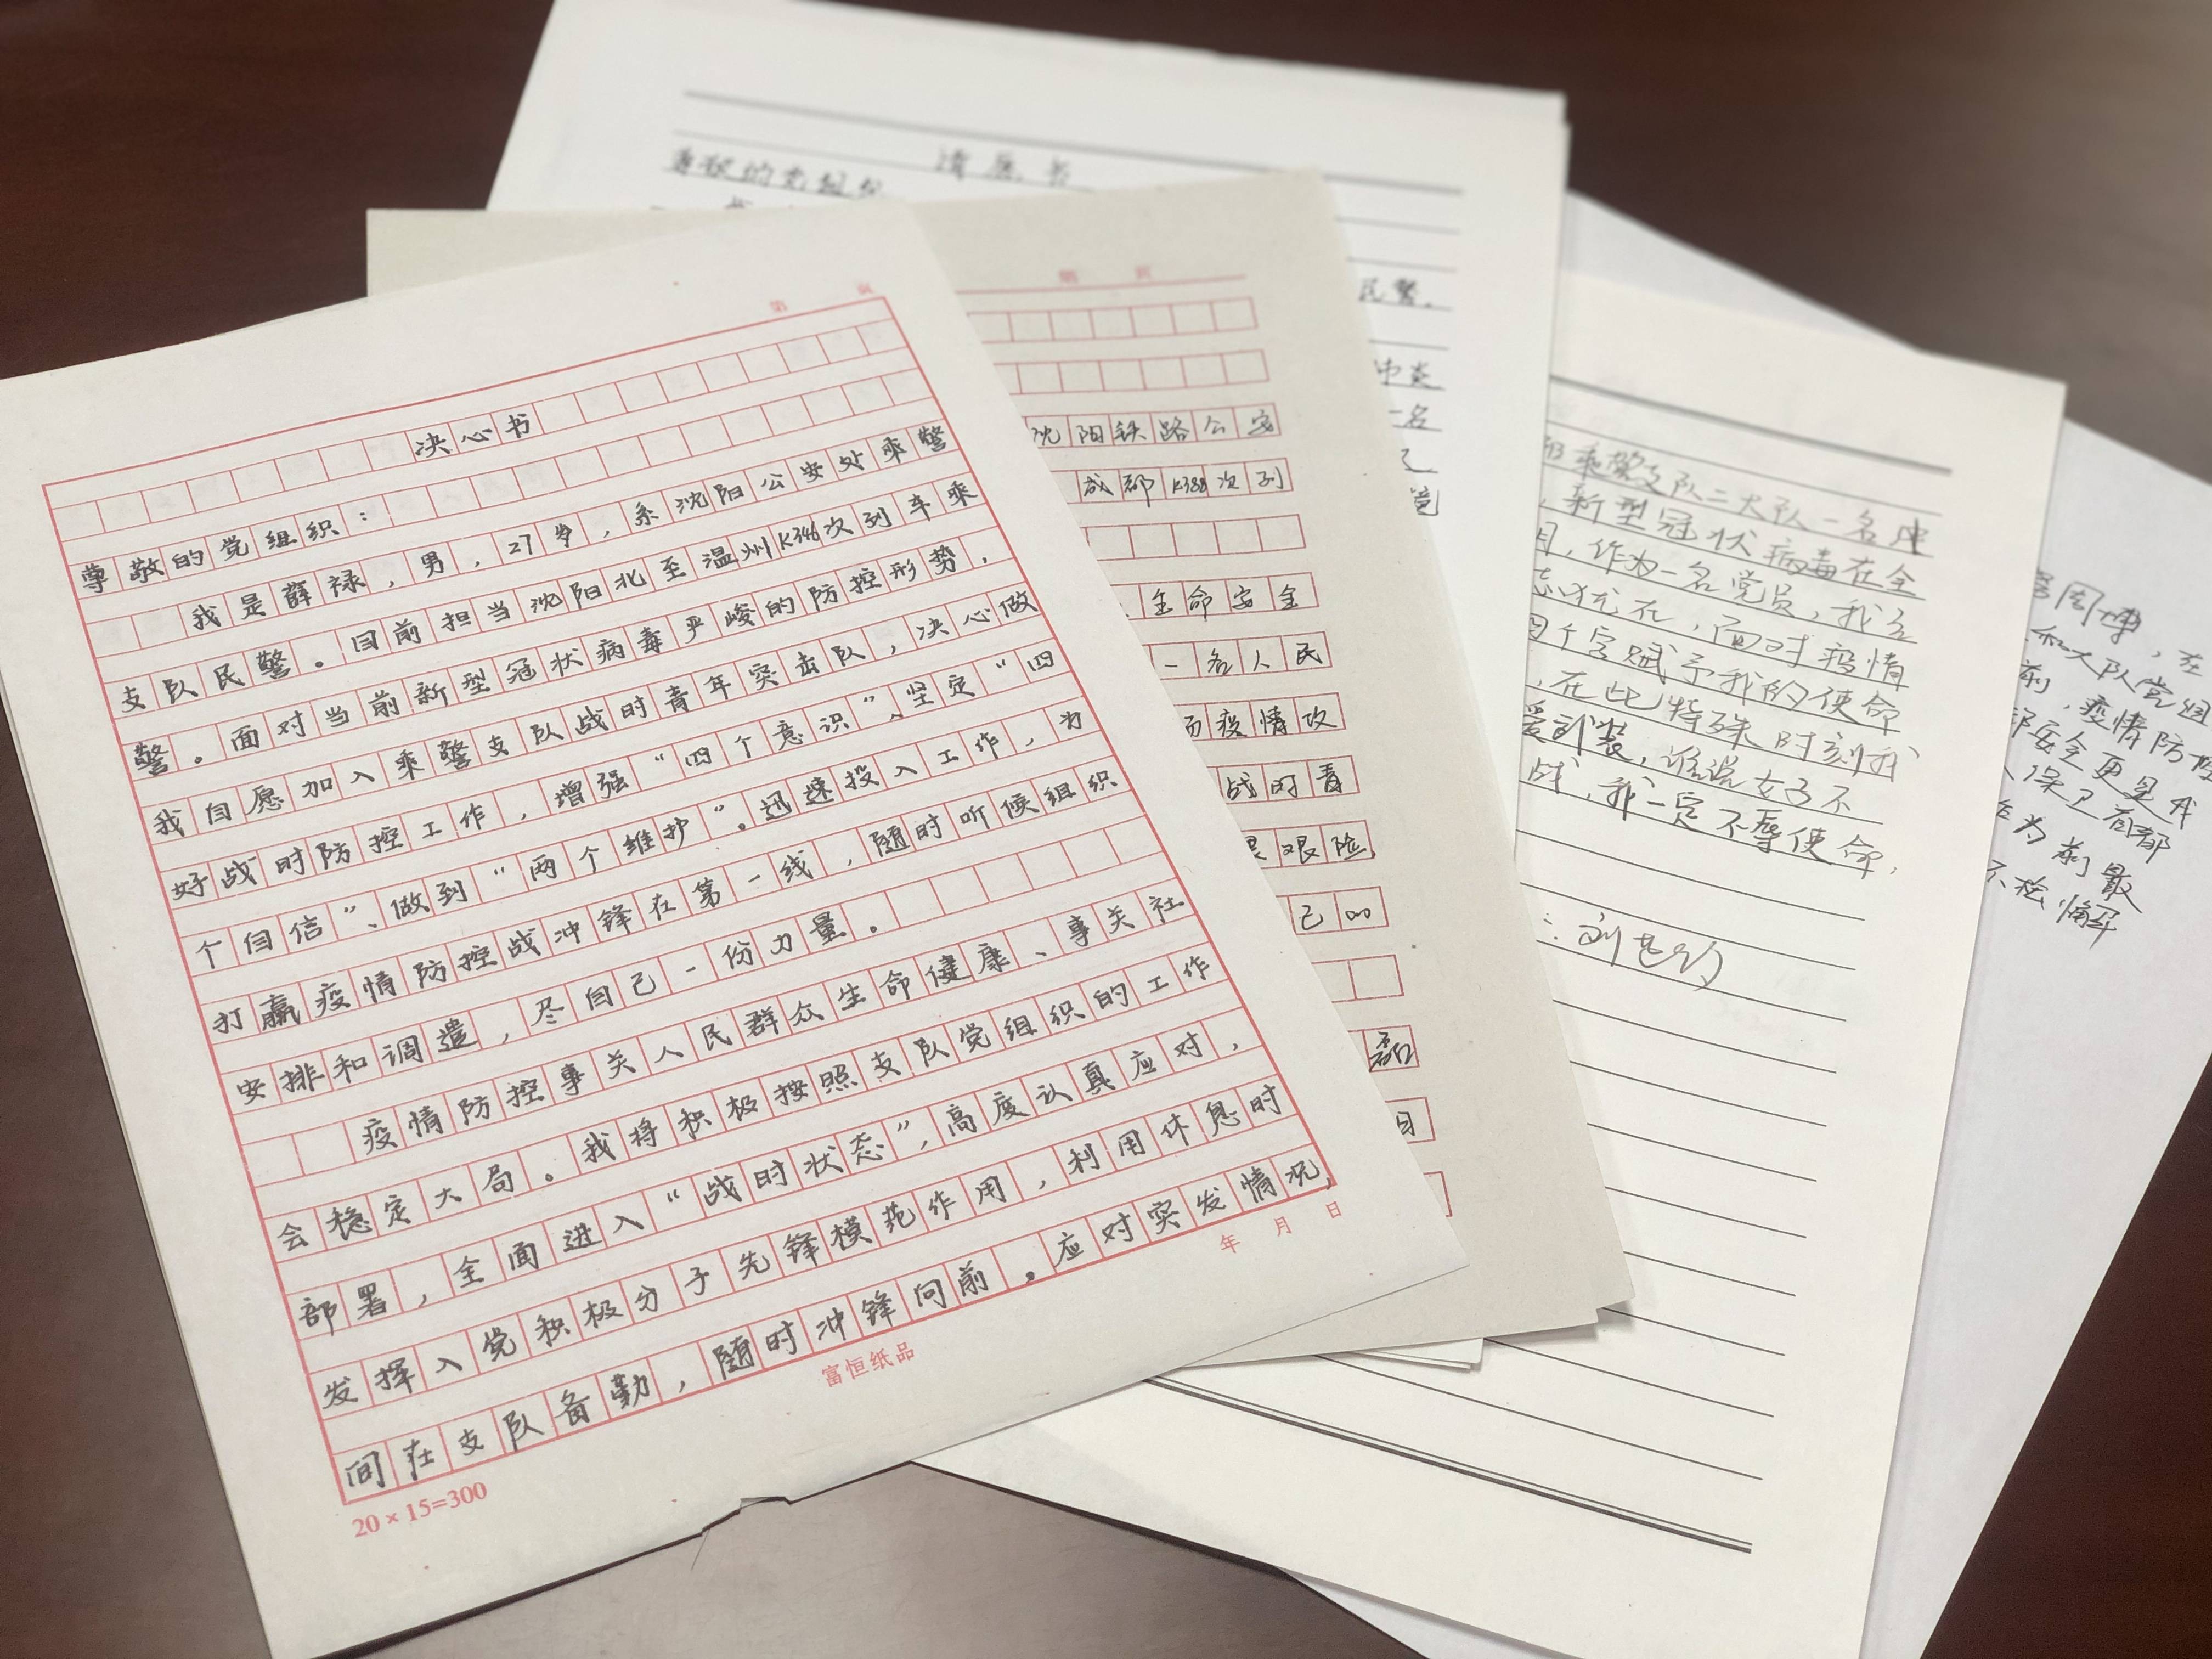 第 页
决心书
尊敬的党组织：
我是薛禄，男，27岁，系沈阳公安处乘警
支队民警。目前担当沈阳北至温州K346次列车乘
警。面对当前新型冠状病毒严峻的防控形势，
我自愿加入乘警支队战时青年突击队，决心做
好战时防控工作，增强“四个意识”、坚定“四
个自信”、做到“两个维护”。迅速投入工作，为
打赢疫情防控战冲锋在第一线，随时听候组织
安排和调遣，尽自己一份力量。
疫情防控事关人民群众生命健康、事关社
会稳定大局。我将积极按照支队党组织的工作
部署，全面进入“战时状态”，高度认真应对，
发挥入党积极分子先锋模范作用，利用休息时
间在支队备勤，随时冲锋向前。应对突发情况，
年 月 日
20×15=300
富恒纸品
第 页
沈阳铁路公安
成都K388次列
生命安全
一名人民
疫情攻
战时青
艰险，
己的
磊
日
请愿书
尊敬的党组织
民警，
一名
乘警支队二大队一名
，新型冠状病毒在全
月，作为一名党员，我
犹在，面对疫情
四个字赋予我的使命
，在此特殊时刻我
爱武装，谁说女子不
战，我一定不辱使命，
，在
和大队党组
，疫情防控
安全更是我
保卫首都